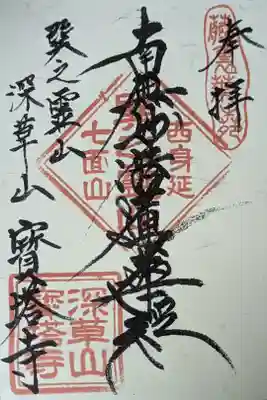 奉拝
南無妙法蓮華経
癸之靈山
深草山
寳塔寺
西身延
七面山
深草山
寶塔寺